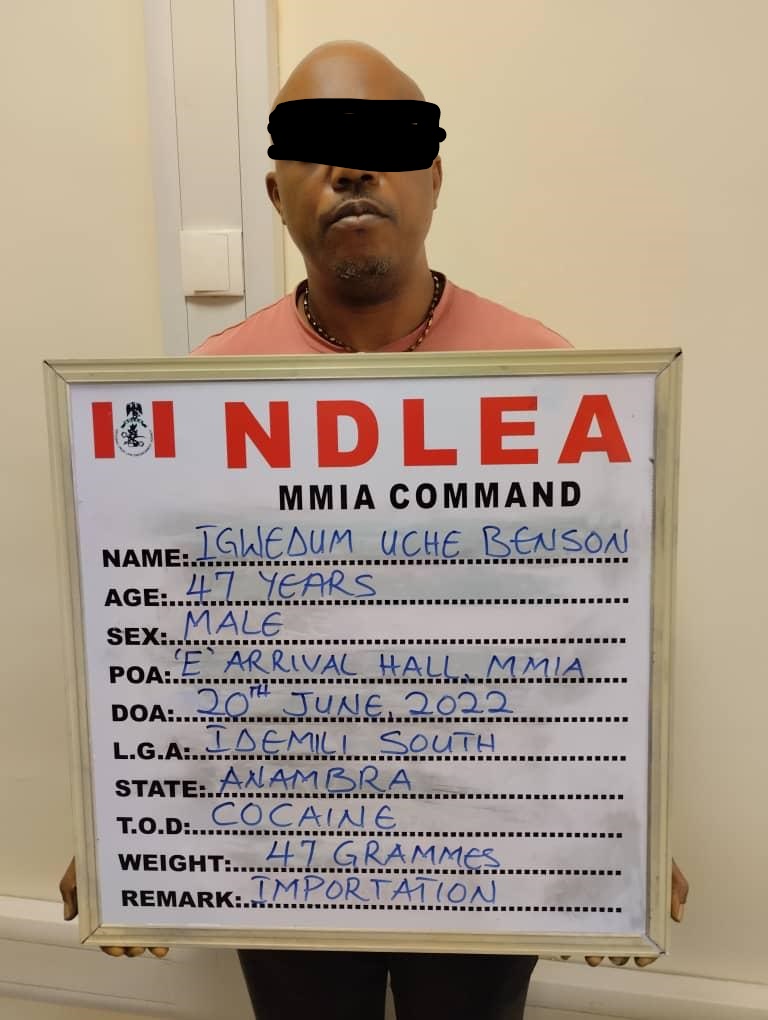 NDLEA
MMIA COMMAND
NAME: IGWEDUM UCHE BENSON
AGE: 47 YEARS
SEX: MALE
POA: 'E' ARRIVAL HALL, MMIA
DOA: 20TH JUNE, 2022
L.G.A: IDEMILI SOUTH
STATE: ANAMBRA
T.O.D: COCAINE
WEIGHT: 47 GRAMMES
REMARK: IMPORTATION